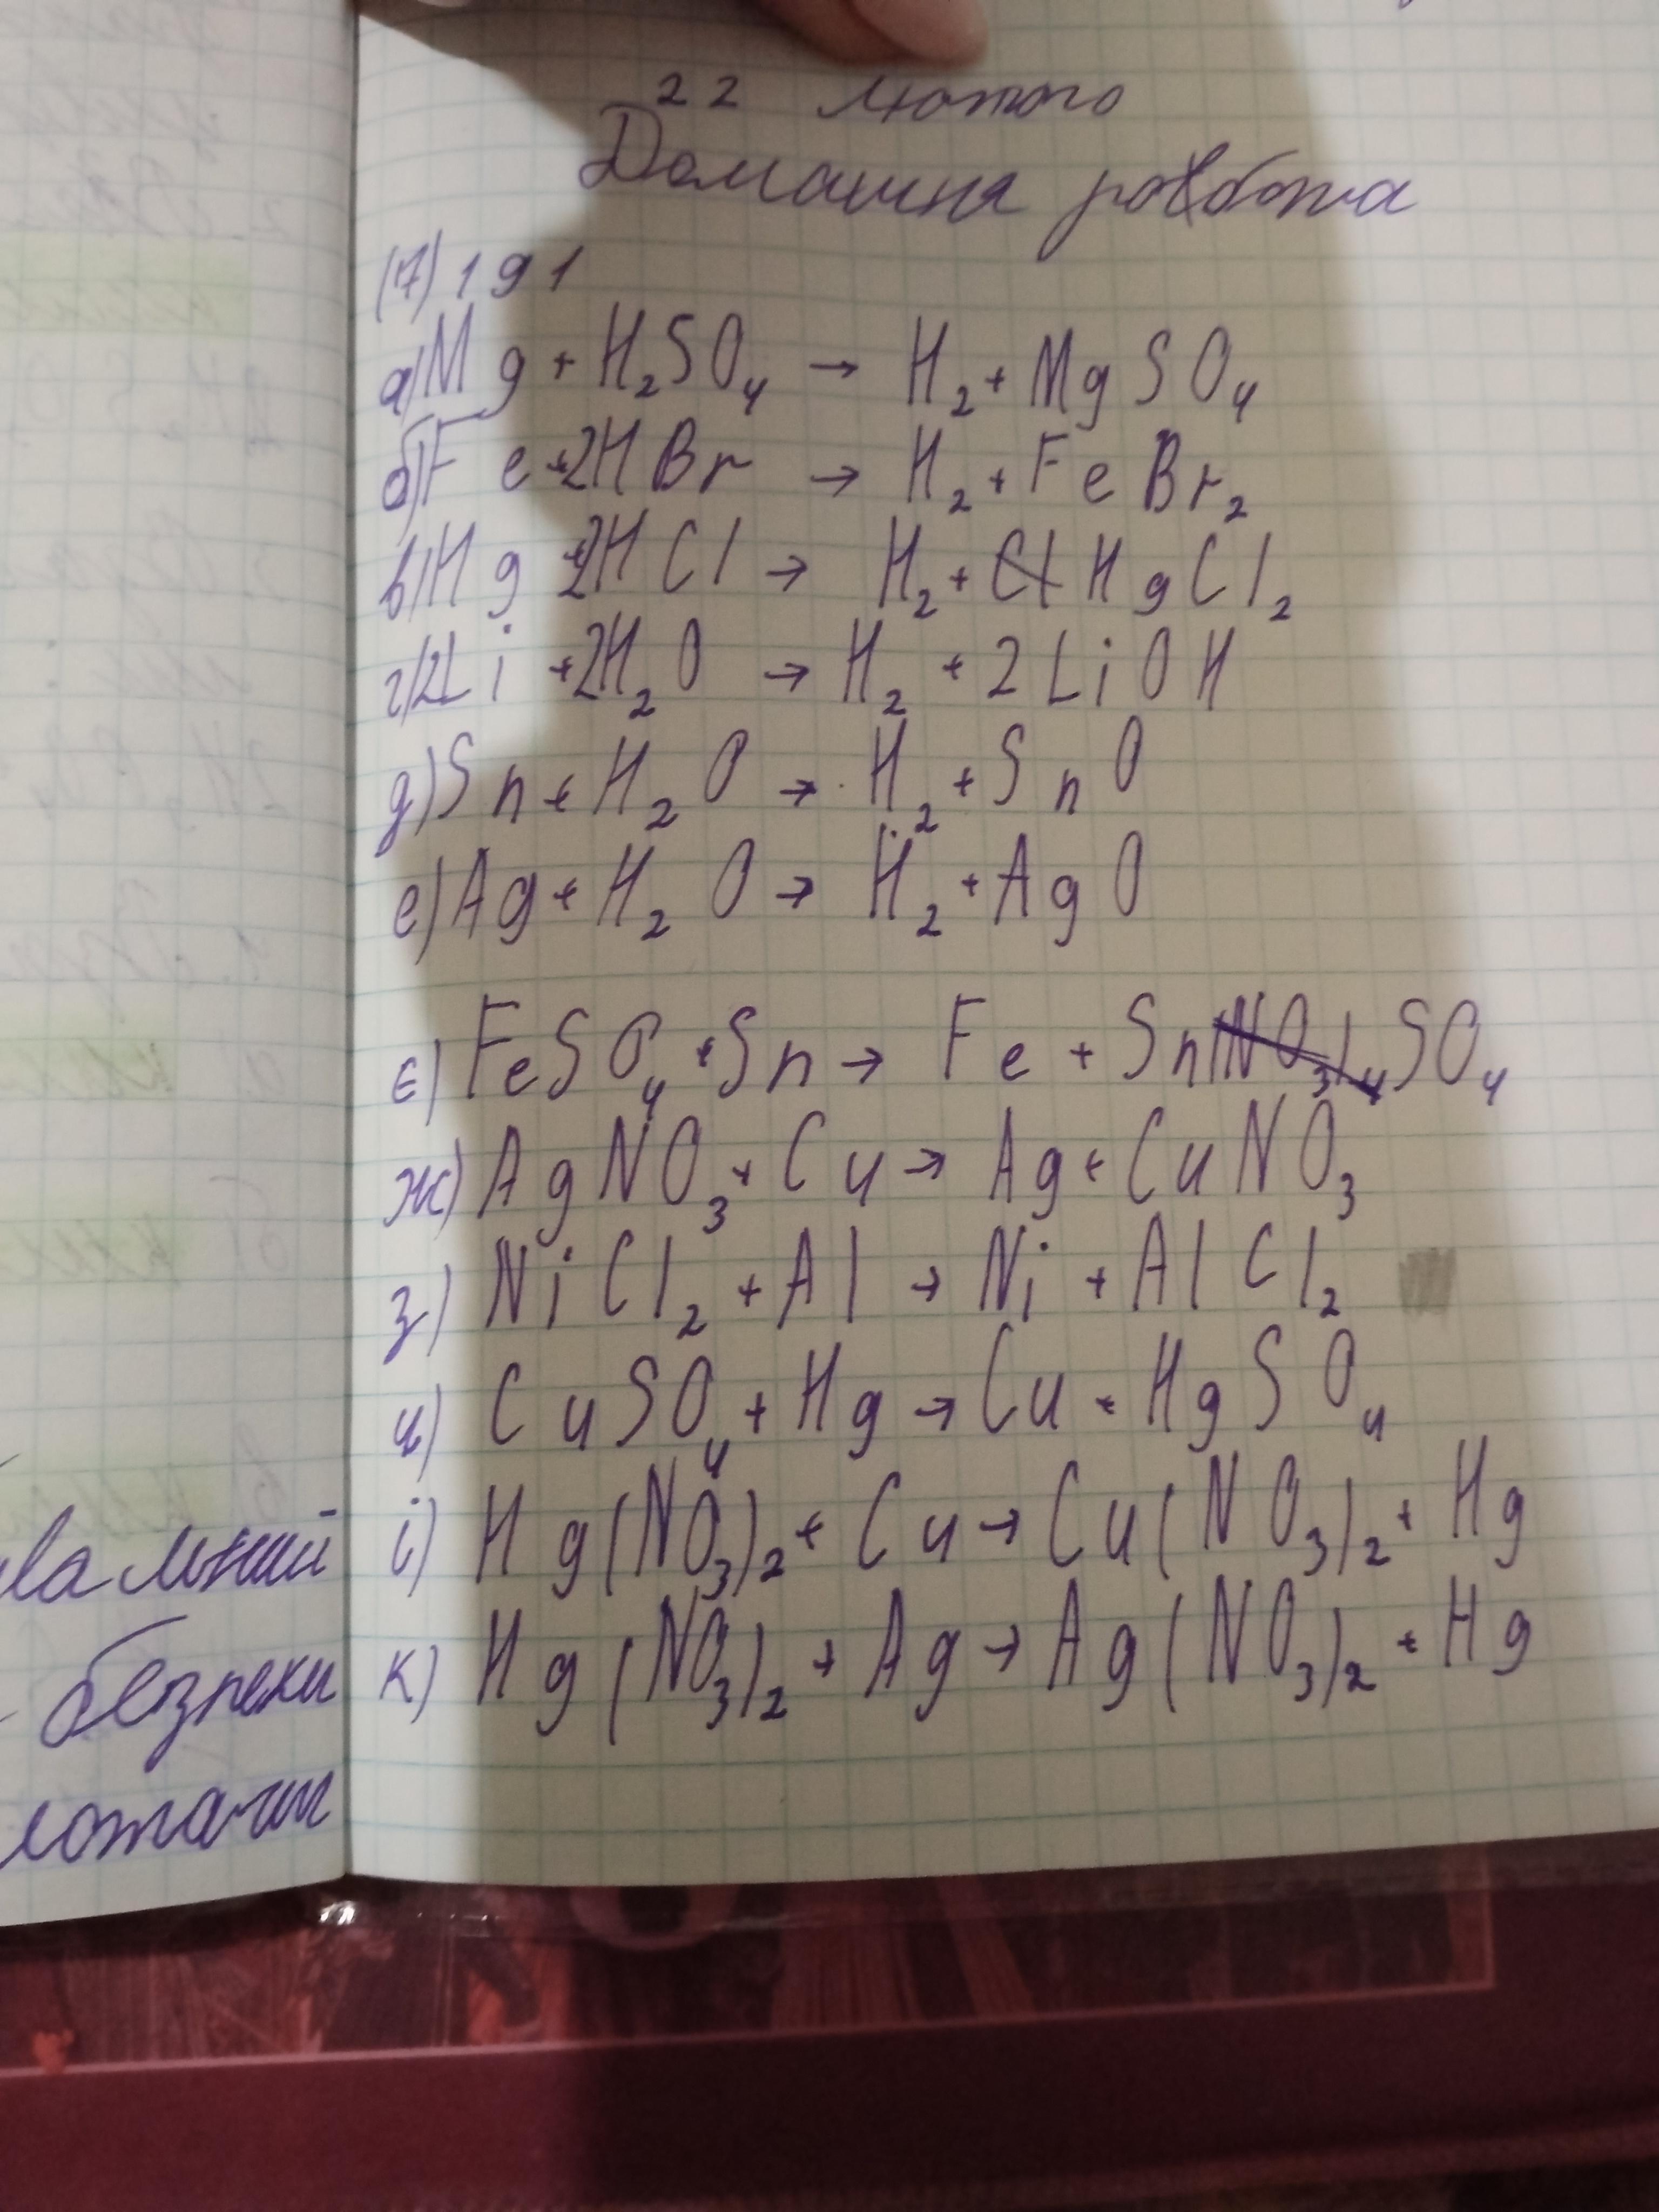 22 лютого
Домашня робота
(7) 191
а) Mg + H₂SO₄ → H₂ + MgSO₄
б) Fe + 2HBr → H₂ + FeBr₂
в) Hg + 2HCl → H₂ + HgCl₂
г) 2Li + 2H₂O → H₂ + 2LiOH
д) Sn + H₂O → H₂ + SnO
е) Ag + H₂O → H₂ + AgO
є) FeSO₄ + Sn → Fe + SnSO₄
ж) AgNO₃ + Cu → Ag + CuNO₃
з) NiCl₂ + Al → Ni + AlCl₂
и) CuSO₄ + Hg → Cu + HgSO₄
і) Hg(NO₃)₂ + Cu → Cu(NO₃)₂ + Hg
к) Hg(NO₃)₂ + Ag → Ag(NO₃)₂ + Hg
безпеки